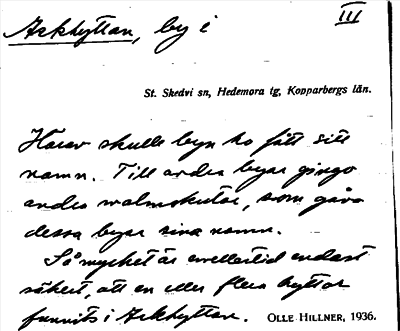 III
Askhyttan, by i
St. Skedvi sn, Hedemora tg, Kopparbergs län.
Härav skulle byn ha fått sitt
namn. Till andra byar gingo
andra malmskutor, som gåvo
dessa byar sina namn.
Så mycket är emellertid endast
säkert, att en eller flera hyttor
funnits i Askhyttan.
OLLE HILLNER, 1936.